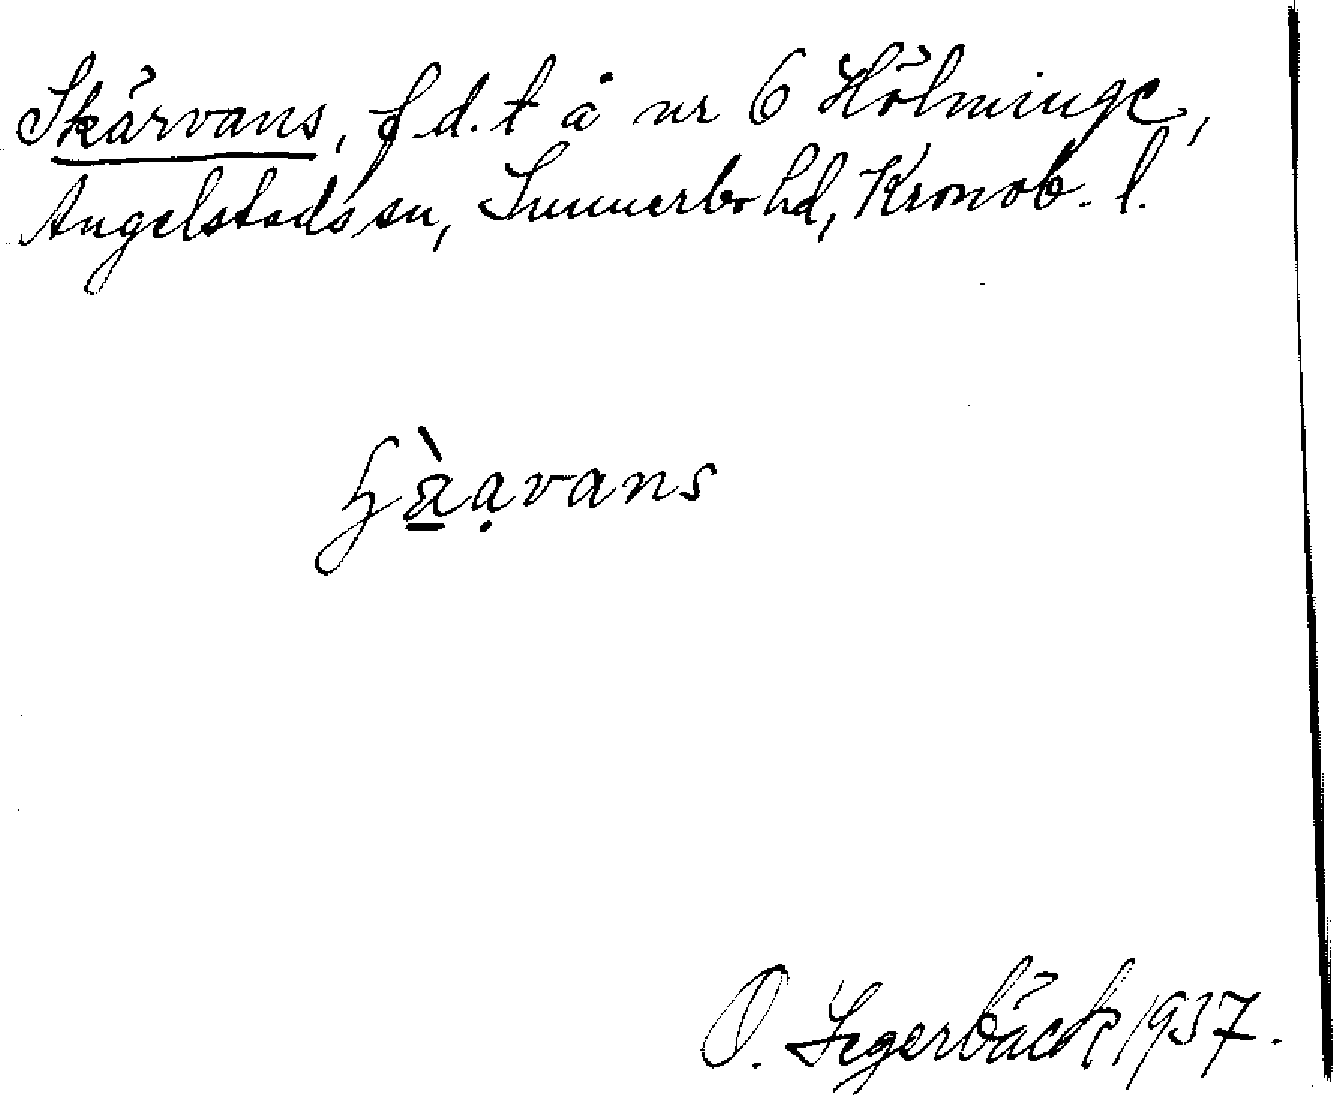 Skärvans, f.d.t å nr 6 Hölminge,
Angelstads sn, Sunnerbo hd, Kronob. l.
O. Segerbäck 1937.